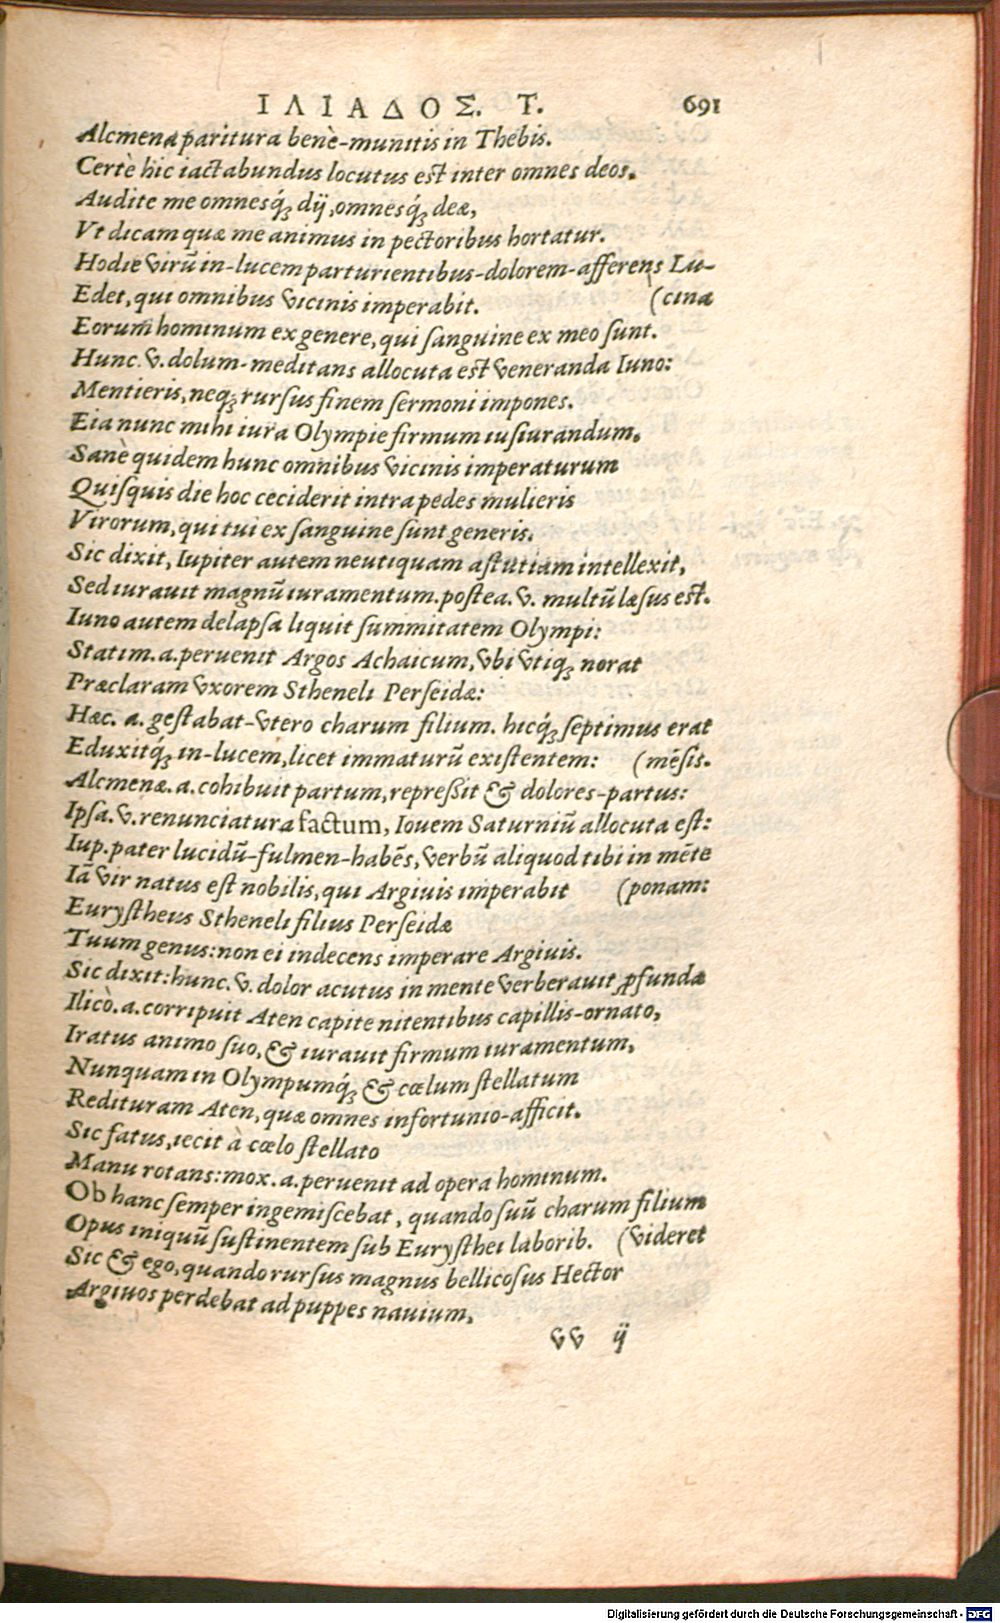 ΙΛΙΑΔΟΣ. Τ. 691
Alcmena paritura benè-munitis in Thebis.
Certè hic iactabundus locutus est inter omnes deos.
Audite me omnesq́; dij, omnesq́; deæ,
Vt dicam quæ me animus in pectoribus hortatur.
Hodie virũ in-lucem parturientibus-dolorem-afferens Lu-
Edet, qui omnibus vicinis imperabit. (cina
Eorum hominum ex genere, qui sanguine ex meo sunt.
Hunc. v. dolum-meditans allocuta est veneranda Iuno:
Mentieris, neq; rursus finem sermoni impones.
Eia nunc mihi iura Olympie firmum iusiurandum.
Sanè quidem hunc omnibus vicinis imperaturum
Quisquis die hoc ceciderit intra pedes mulieris
Virorum, qui tui ex sanguine sunt generis.
Sic dixit, Iupiter autem neutiquam astutiam intellexit,
Sed iurauit magnũ iuramentum. postea. v. multũ læsus est.
Iuno autem delapsa liquit summitatem Olympi:
Statim. a. peruenit Argos Achaicum, vbi vtiq; norat
Præclaram vxorem Stheneli Perseidæ:
Hæc. a. gestabat-vtero charum filium. hicq́; septimus erat
Eduxitq́; in-lucem, licet immaturũ existentem: (mẽsis.
Alcmenæ. a. cohibuit partum, repressit & dolores-partus:
Ipsa. v. renunciatura factum, Iouem Saturniũ allocuta est:
Iup. pater lucidũ-fulmen-habẽs, verbũ aliquod tibi in mẽte
Iã vir natus est nobilis, qui Argiuis imperabit (ponam:
Eurystheus Stheneli filius Perseidæ
Tuum genus: non ei indecens imperare Argiuis.
Sic dixit: hunc. v. dolor acutus in mente verberauit ꝓfunda
Ilicò. a. corripuit Aten capite nitentibus capillis-ornato,
Iratus animo suo, & iurauit firmum iuramentum,
Nunquam in Olympumq́; & cœlum stellatum
Redituram Aten, quæ omnes infortunio-afficit.
Sic fatus, iecit à cœlo stellato
Manu rotans: mox. a. peruenit ad opera hominum.
Ob hanc semper ingemiscebat, quando suũ charum filium
Opus iniquũ sustinentem sub Eurysthei laborib. (videret
Sic & ego, quando rursus magnus bellicosus Hector
Argiuos perdebat ad puppes nauium,
vv ij
Digitalisierung gefördert durch die Deutsche Forschungsgemeinschaft - DFG